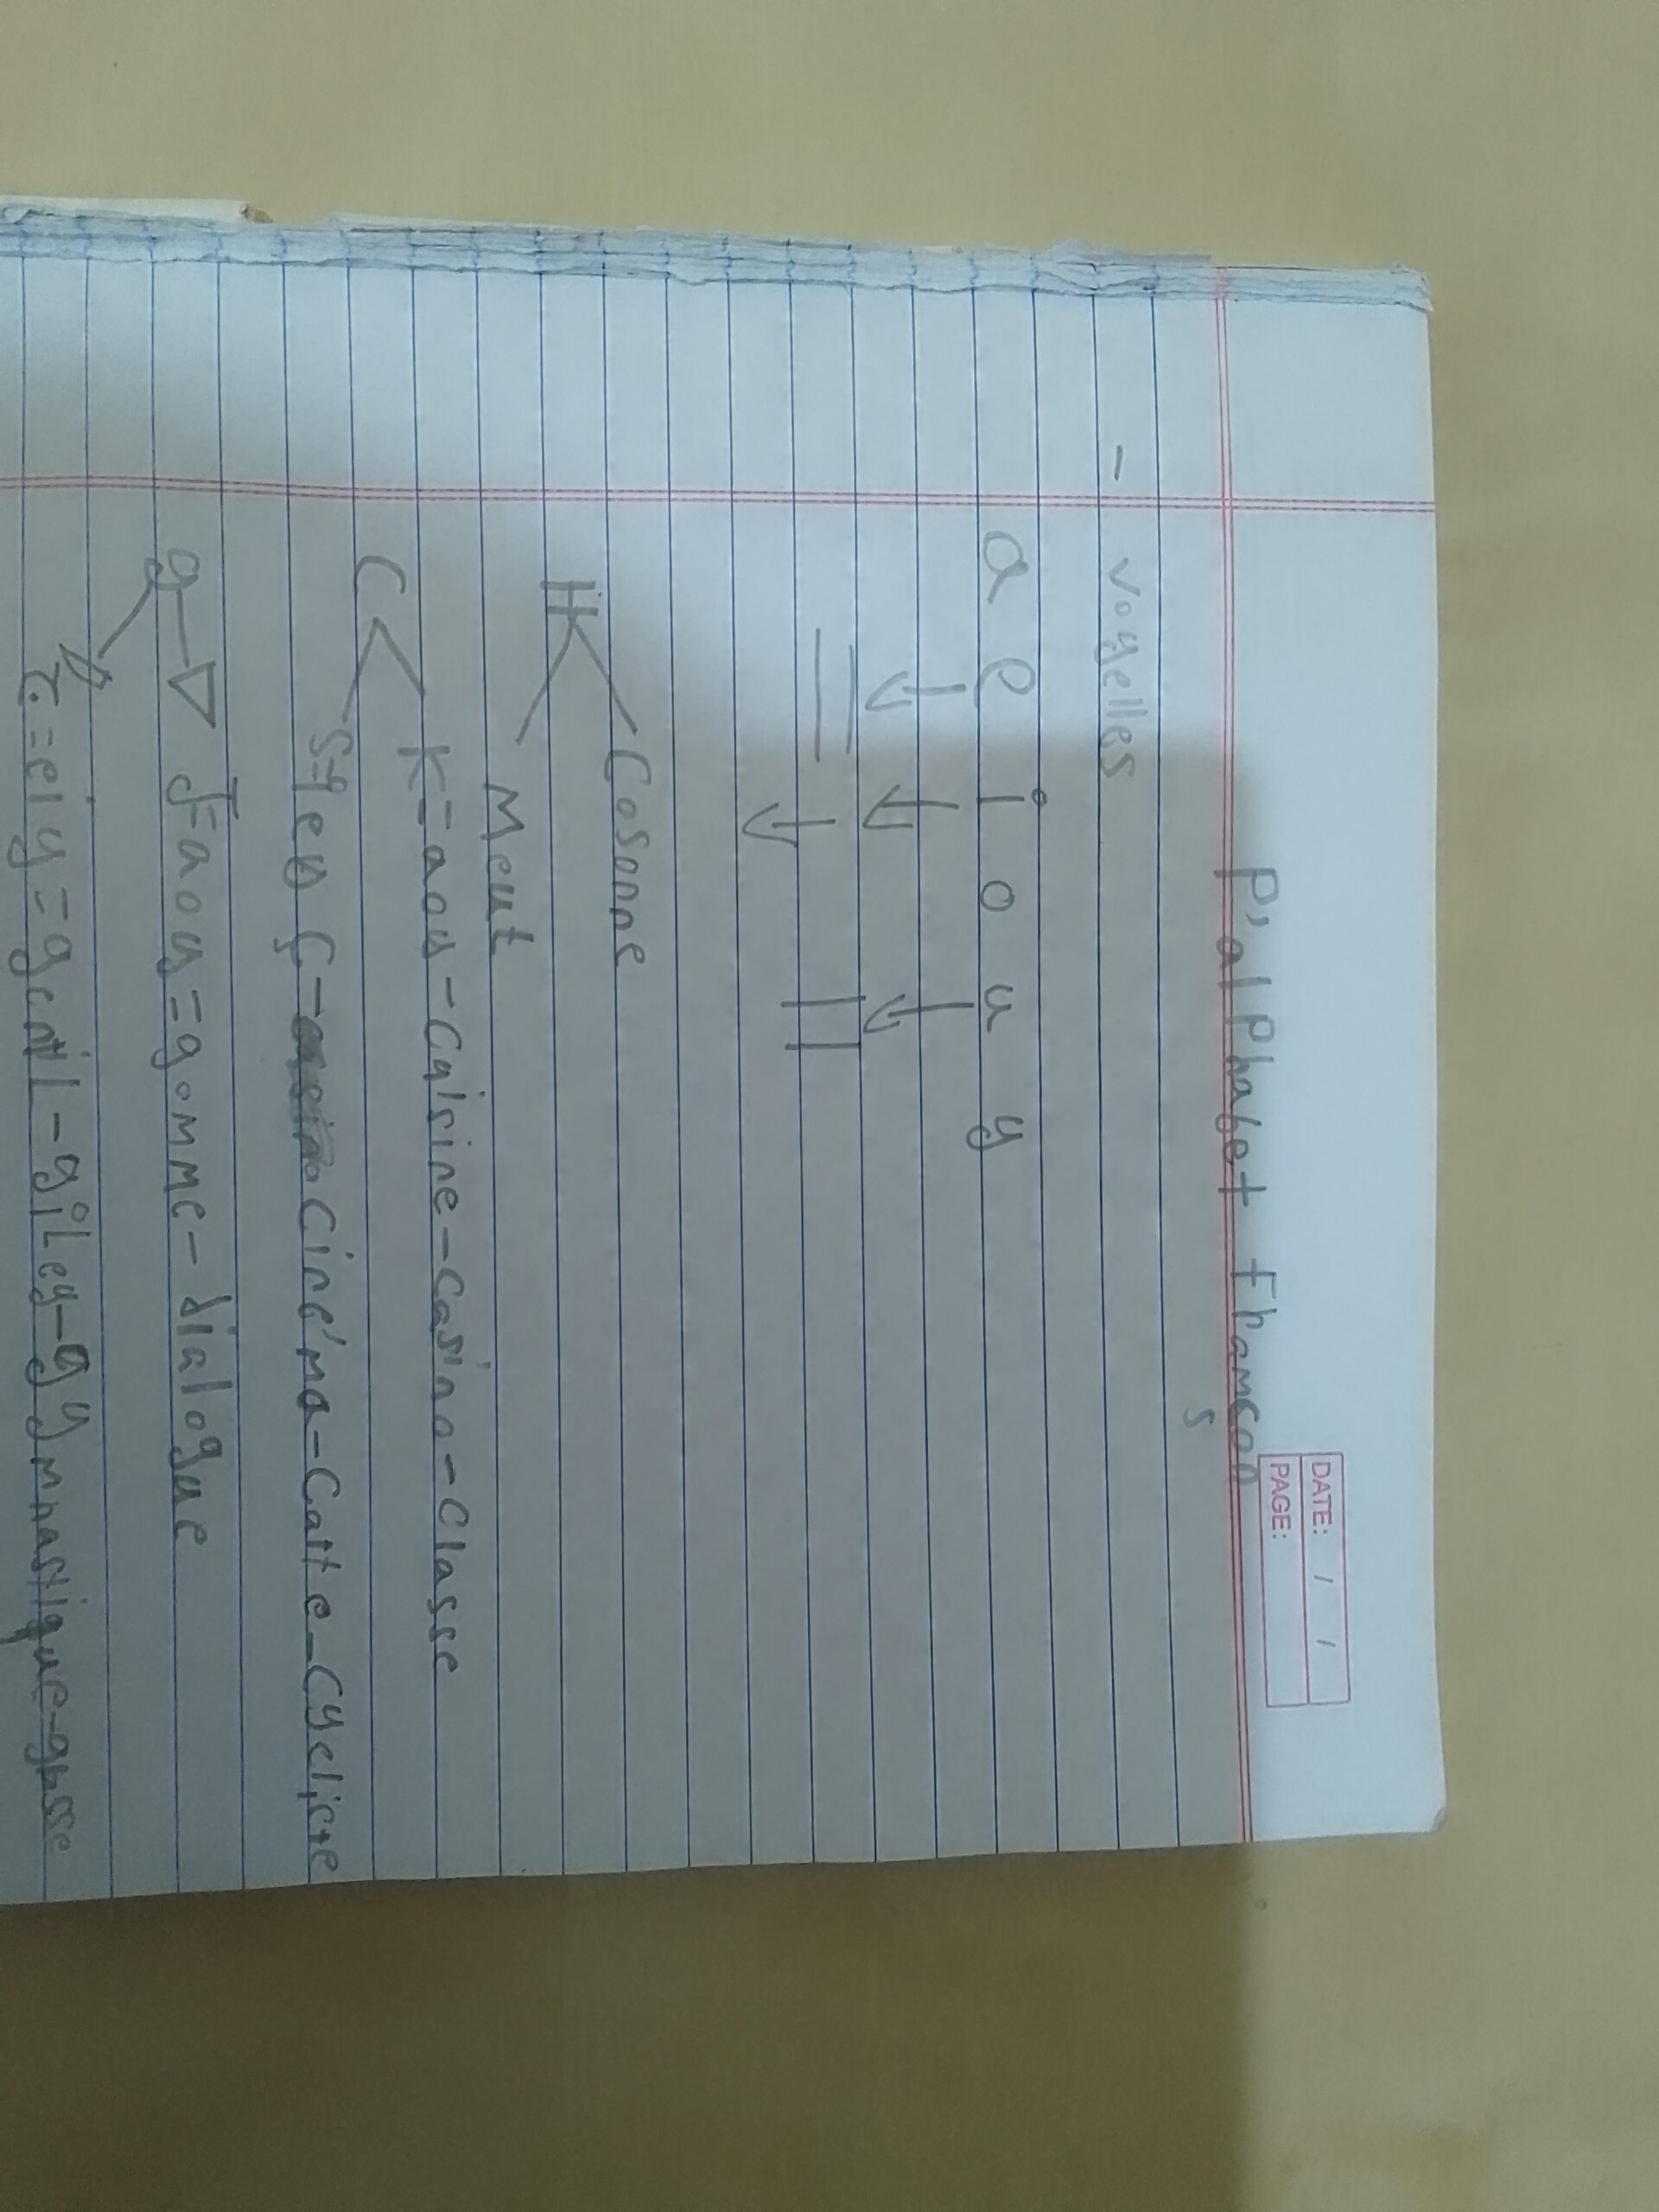 DATE: / /
PAGE:
P,alphabet
s
- voyelles
a e i o u y
Cosone
H
Meut
K=aou-Cuisine-Casino-Classe
C
Cinéma-Carte-Cycliste
g aou=gomme-dialogue
=eiy=gentil-giley-gymnastique-gosse